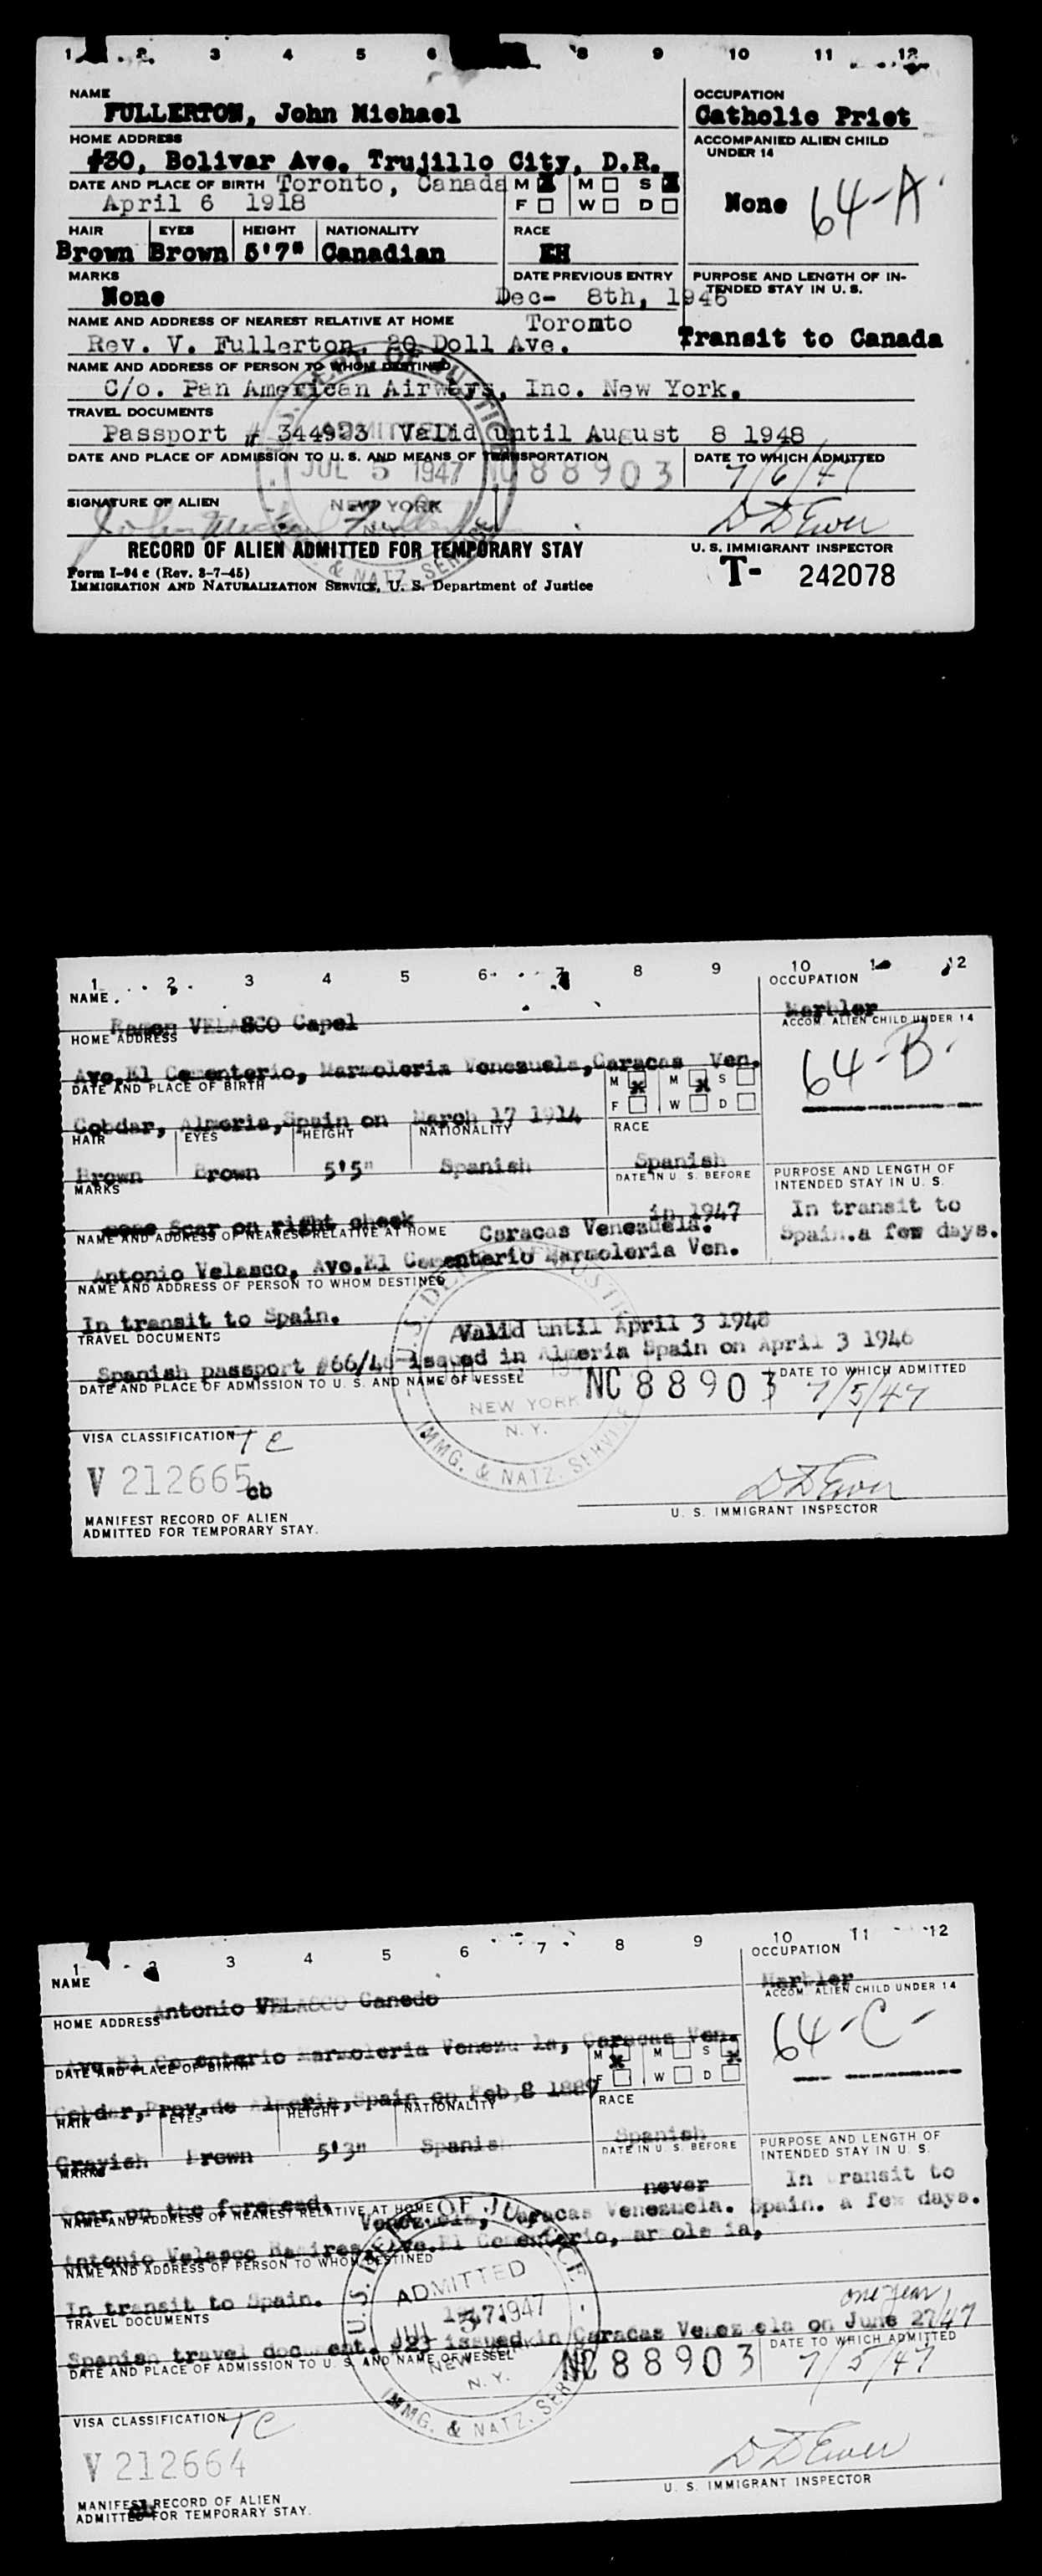 1 2 3 4 5 6 8 9 10 11 12
NAME
FULLERTON, John Michael
OCCUPATION
Catholic Priet
HOME ADDRESS
#30, Bolivar Ave. Trujillo City, D.R.
ACCOMPANIED ALIEN CHILD
UNDER 14
None 64-A
DATE AND PLACE OF BIRTH Toronto, Canada
April 6 1918
M M S
F W D
HAIR EYES HEIGHT NATIONALITY RACE
Brown Brown 5'7" Canadian EH
MARKS
None
DATE PREVIOUS ENTRY
Dec- 8th, 1946
PURPOSE AND LENGTH OF IN-
TENDED STAY IN U. S.
Transit to Canada
NAME AND ADDRESS OF NEAREST RELATIVE AT HOME Toronto
Rev. V. Fullerton, 20 Doll Ave.
NAME AND ADDRESS OF PERSON TO WHOM DESTINED
C/o. Pan American Airways, Inc. New York.
TRAVEL DOCUMENTS
Passport # 344923 Valid until August 8 1948
DATE AND PLACE OF ADMISSION TO U. S. AND MEANS OF TRANSPORTATION
ADMITTED
JUL 5 1947 NC 88903
NEW YORK
N.Y.
DATE TO WHICH ADMITTED
7/6/47
SIGNATURE OF ALIEN
D D Ewer
RECORD OF ALIEN ADMITTED FOR TEMPORARY STAY
U. S. IMMIGRANT INSPECTOR
Form I-94 c (Rev. 3-7-45)
IMMIGRATION AND NATURALIZATION SERVICE, U. S. Department of Justice
T- 242078
1 2 3 4 5 6 7 8 9 10 12
NAME
Ramon VELASCO Capel
OCCUPATION
Marbler
HOME ADDRESS
Ave.El Cementerio, Marmoleria Venezuela,Caracas Ven.
ACCOM. ALIEN CHILD UNDER 14
64-B.
DATE AND PLACE OF BIRTH
Cobdar, Almeria,Spain on March 17 1914
M M S
F W D
HAIR EYES HEIGHT NATIONALITY RACE
Brown Brown 5'5" Spanish Spanish
MARKS
Scar on right cheek
DATE IN U. S. BEFORE
in 1947
PURPOSE AND LENGTH OF
INTENDED STAY IN U. S.
In transit to
Spain.a few days.
NAME AND ADDRESS OF NEAREST RELATIVE AT HOME Caracas Venezuela.
Antonio Velasco, Ave.El Cementerio Marmoleria Ven.
NAME AND ADDRESS OF PERSON TO WHOM DESTINED
In transit to Spain.
TRAVEL DOCUMENTS
Valid until April 3 1948
Spanish passport issued in Almeria Spain on April 3 1946
DATE AND PLACE OF ADMISSION TO U. S. AND NAME OF VESSEL
NC 88903
NEW YORK
N. Y.
IMMG. & NATZ. SERVICE
DATE TO WHICH ADMITTED
7/5/47
VISA CLASSIFICATION TC
V 212665 cb
D D Ewer
U. S. IMMIGRANT INSPECTOR
MANIFEST RECORD OF ALIEN
ADMITTED FOR TEMPORARY STAY.
1 2 3 4 5 6 7 8 9 10 11 12
NAME
Antonio VELASCO Canedo
OCCUPATION
Marbler
HOME ADDRESS
Ave.El Cementerio Marmoleria Caracas Ven.
ACCOM. ALIEN CHILD UNDER 14
64-C-
DATE AND PLACE OF BIRTH
Cobdar,Prov.de Almeria,Spain on Feb 8
M M S
F W D
HAIR EYES HEIGHT NATIONALITY RACE
Grayish Brown 5'3" Spanish Spanish
MARKS
Scar on the forehead.
DATE IN U. S. BEFORE
never
PURPOSE AND LENGTH OF
INTENDED STAY IN U. S.
In transit to
Spain. a few days.
NAME AND ADDRESS OF NEAREST RELATIVE AT HOME Venezuela, Caracas Venezuela.
Antonio Velasco Ramires, Ave.El Cementerio,
NAME AND ADDRESS OF PERSON TO WHOM DESTINED
In transit to Spain.
TRAVEL DOCUMENTS
one year,
Spanish travel document. 323 issued in Caracas Venezuela on June 27/47
DATE AND PLACE OF ADMISSION TO U. S. AND NAME OF VESSEL
U. S. DEPT. OF JUSTICE
ADMITTED
JUL 5 1947
NEW YORK
N. Y.
IMMG. & NATZ. SERVICE
NC 88903
DATE TO WHICH ADMITTED
7/5/47
VISA CLASSIFICATION TC
V 212664
D D Ewer
U. S. IMMIGRANT INSPECTOR
MANIFEST RECORD OF ALIEN
ADMITTED FOR TEMPORARY STAY.